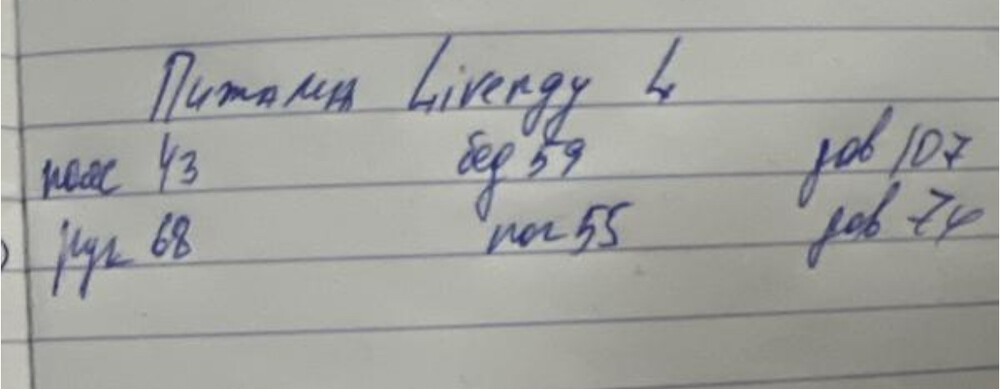 Пижама Livergy L
пояс 43 бед 59 дов 107
рук 68 пог 55 дов 74